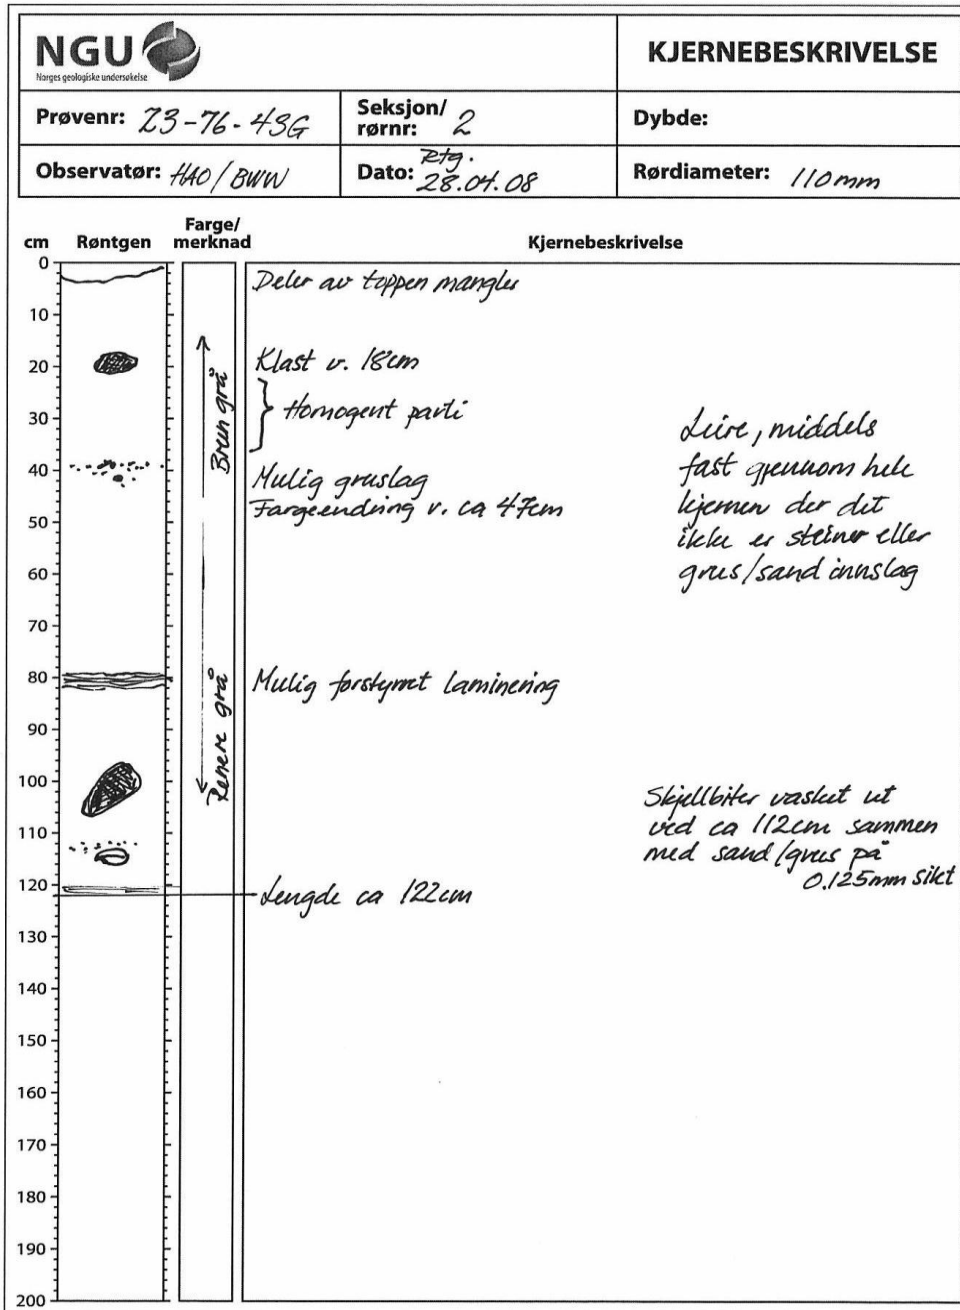 NGU
Norges geologiske undersøkelse
KJERNEBESKRIVELSE
Prøvenr: 23-76-43G
Seksjon/
rørnr: 2
Dybde:
Observatør: HAO/BWW
Rtg.
Dato: 28.04.08
Rørdiameter: 110mm
cm
Røntgen
Farge/
merknad
Kjernebeskrivelse
0
10
20
30
40
50
60
70
80
90
100
110
120
130
140
150
160
170
180
190
200
Brun grå
Renere grå
Deler av toppen mangler
Klast v. 18cm
Homogent parti
Mulig gruslag
Fargeendring v. ca 47cm
Leire, middels
fast gjennom hele
kjernen der det
ikke er steiner eller
grus/sand innslag
Mulig forstyrret laminering
Skjellbiter vasket ut
ved ca 112cm sammen
med sand/grus på
0.125mm sikt
Lengde ca 122cm